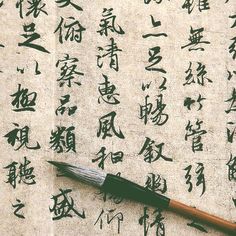 雖無絲竹管弦
亦足以暢敘幽情
氣清惠風和暢仰
大俯察品類盛
懷足以極視聽之